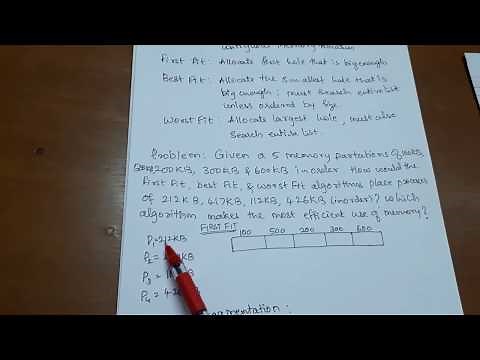 First Fit: Allocate first hole that is big enough
Best Fit: Allocate the smallest hole that is
big enough; must search entire list
unless ordered by size
Worst Fit: Allocate largest hole, must also
search entire list.
Problem: Given a 5 memory partations of 100KB,
500KB 200KB, 300KB & 600KB in order How would the
first Fit, best Fit, & worst Fit algorithms place process
of 212KB, 417KB, 112KB, 426KB (in order)? Which
algorithm makes the most efficient use of memory?
FIRST FIT
100 500 200 300 600
P1=212KB
P2 = KB
P3 = KB
P4 = 4